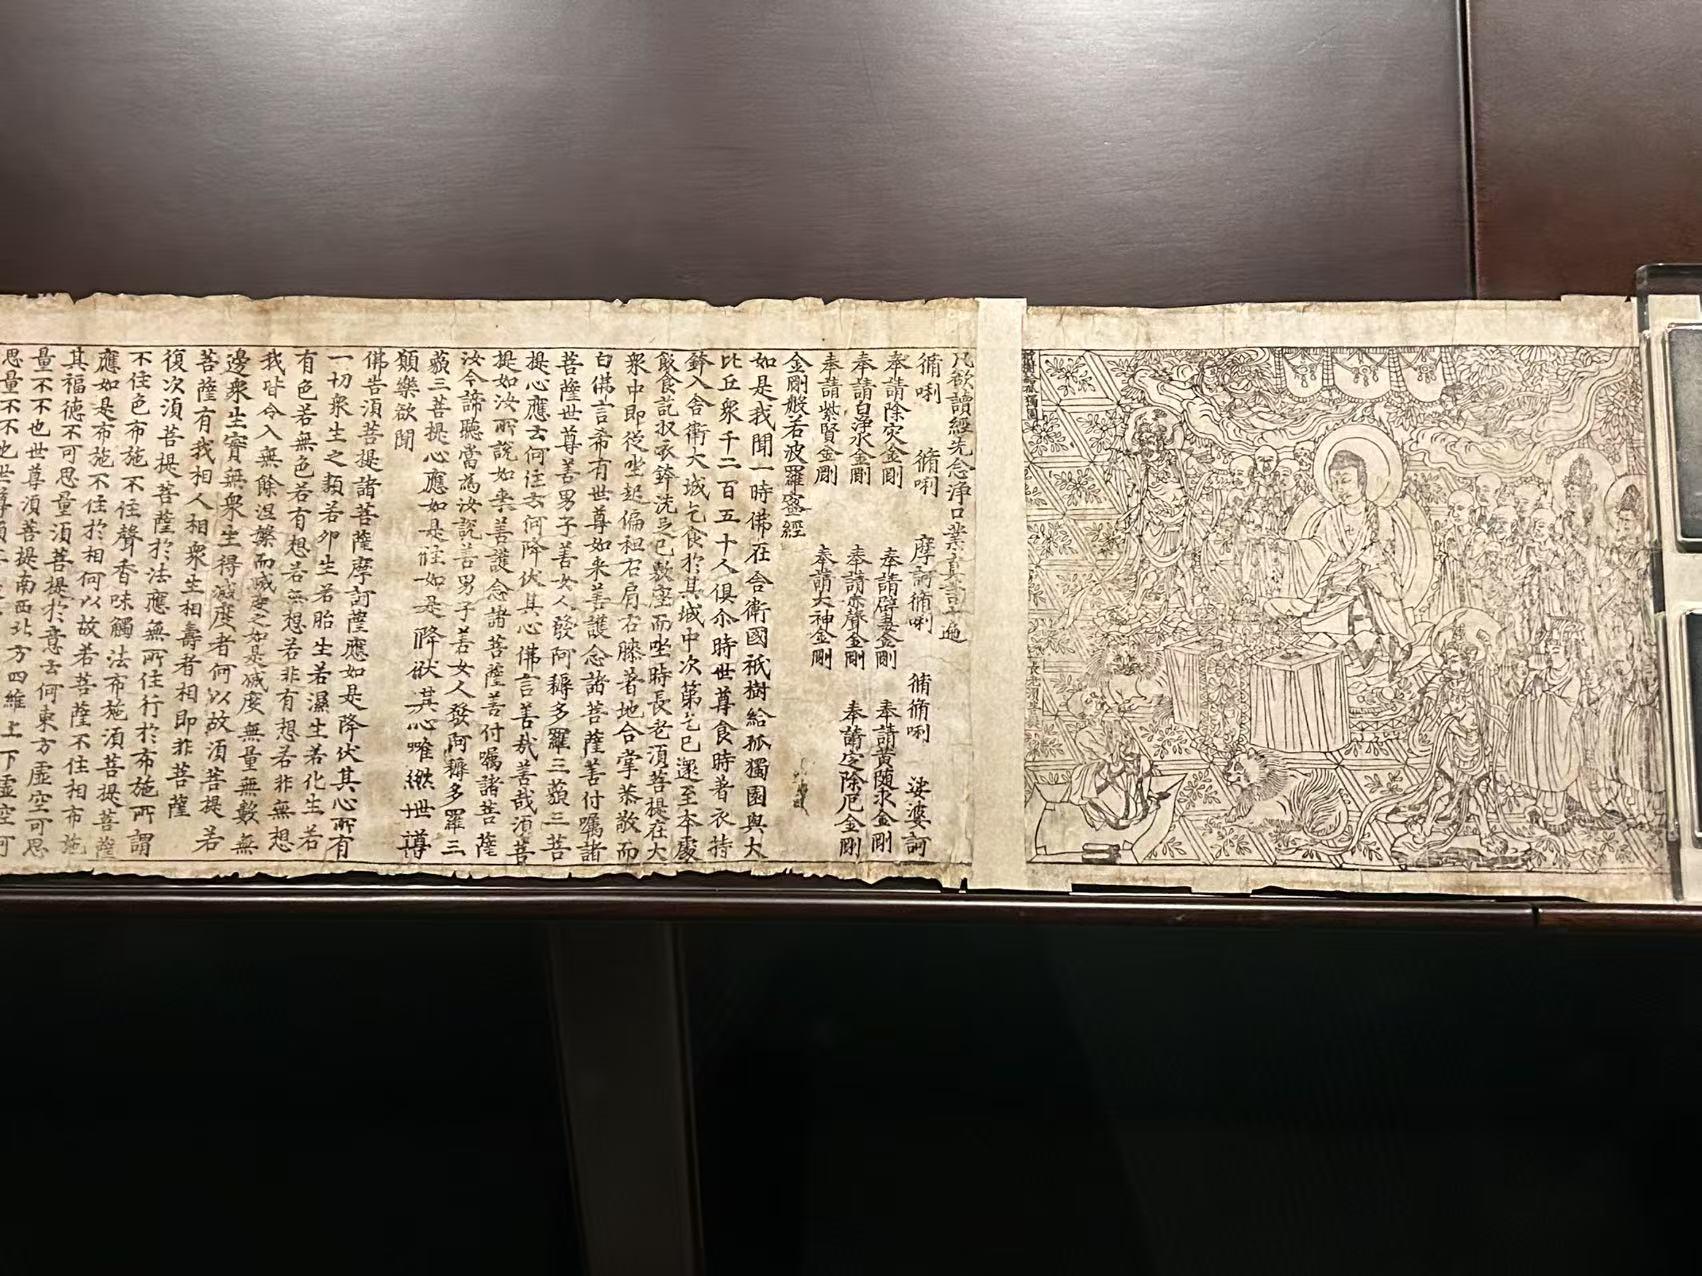 祇樹給孤獨園
長老須菩提
凡欲讀經先念淨口業真言一遍
脩唎 脩唎 摩訶脩唎 脩脩唎 娑婆訶
奉請除灾金剛 奉請辟毒金剛 奉請黄隨求金剛
奉請白淨水金剛 奉請赤聲金剛 奉請定除厄金剛
奉請紫賢金剛 奉請大神金剛
金剛般若波羅蜜經
如是我聞一時佛在舍衛國祇樹給孤獨園與大
比丘衆千二百五十人俱尒時世尊食時著衣持
鉢入舍衛大城乞食於其城中次第乞已還至本處
飯食訖收衣鉢洗足已敷座而坐時長老須菩提在大
衆中即從坐起偏袒右肩右膝著地合掌恭敬而
白佛言希有世尊如来善護念諸菩薩善付囑諸
菩薩世尊善男子善女人發阿耨多羅三藐三菩
提心應云何住云何降伏其心佛言善哉善哉須菩
提如汝所說如來善護念諸菩薩善付囑諸菩薩
汝今諦聽當為汝說善男子善女人發阿耨多羅三
藐三菩提心應如是住如是降伏其心唯然世尊
願樂欲聞
佛告須菩提諸菩薩摩訶薩應如是降伏其心所有
一切衆生之類若卵生若胎生若濕生若化生若
有色若無色若有想若無想若非有想若非無想
我皆令入無餘涅槃而滅度之如是滅度無量無數無
邊衆生實無衆生得滅度者何以故須菩提若
菩薩有我相人相衆生相壽者相即非菩薩
復次須菩提菩薩於法應無所住行於布施所謂
不住色布施不住聲香味觸法布施須菩提菩薩
應如是布施不住於相何以故若菩薩不住相布施
其福德不可思量須菩提於意云何東方虛空可思
量不不也世尊須菩提南西北方四維上下虛空可
思量不不也世尊須